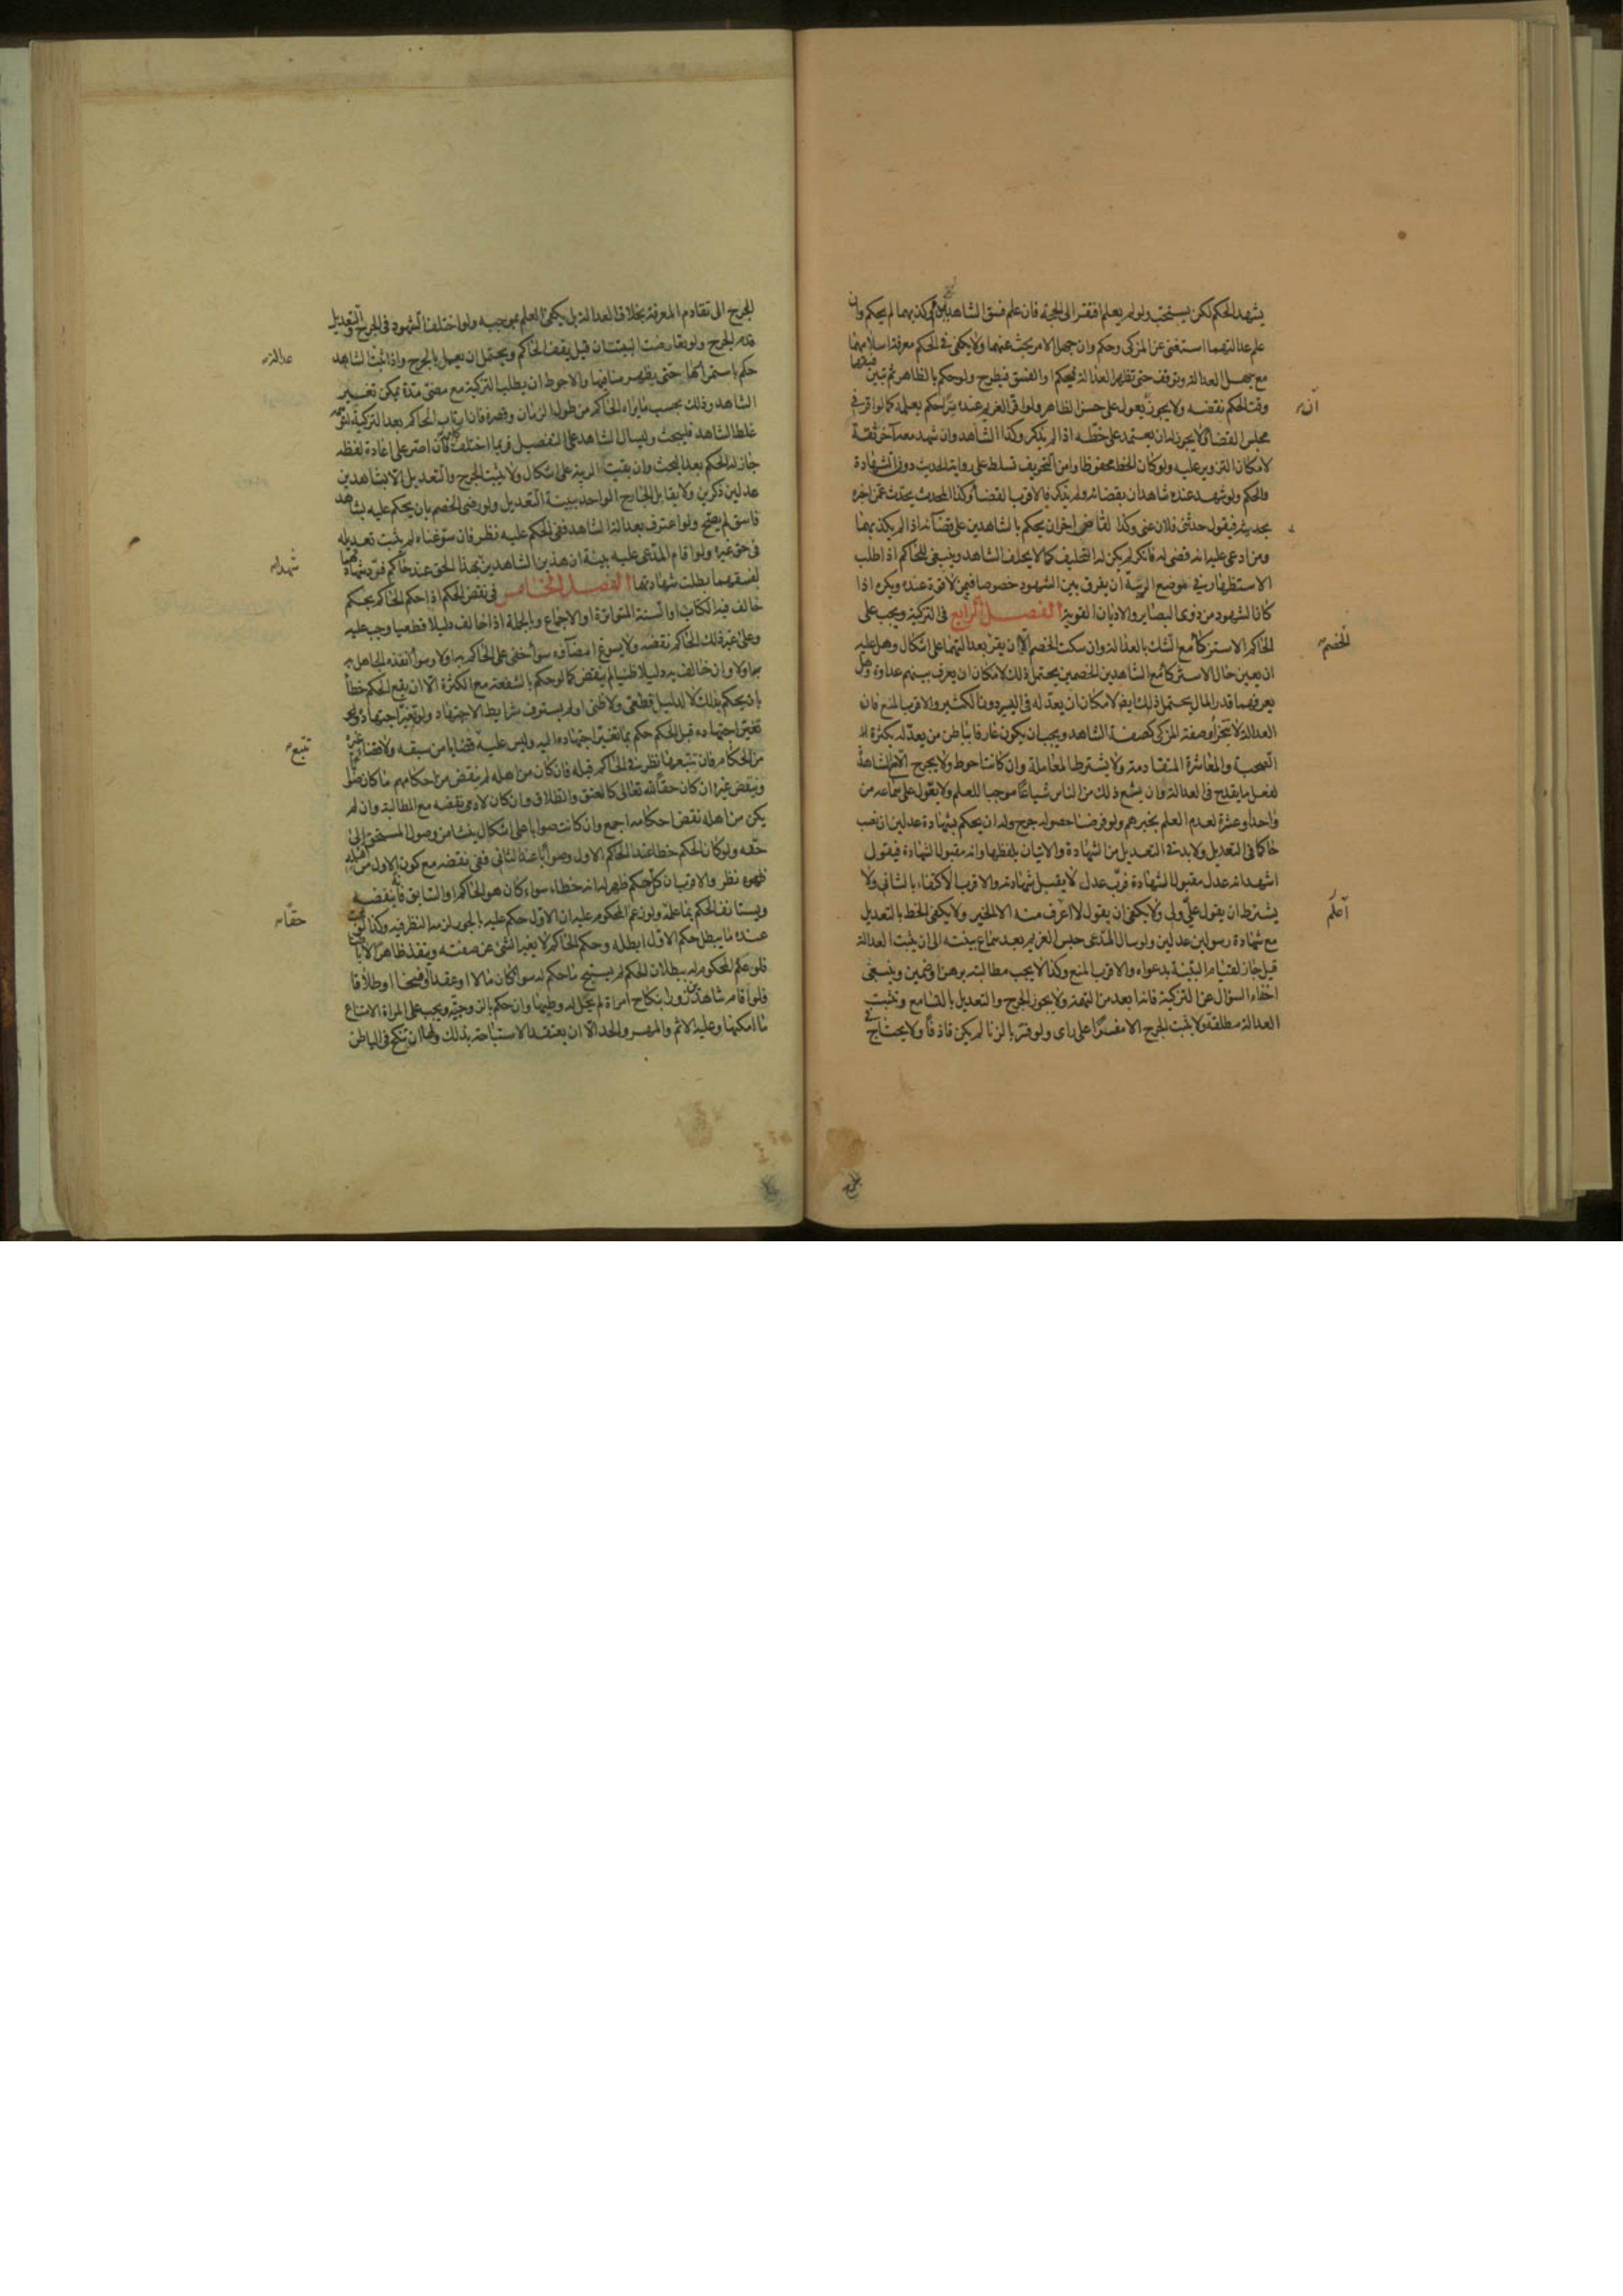 يشهد الحكم لكن يستحب ولو لم يعلم افتقر الى الحجة فان علم فسق الشاهدين او كذبهما لم يحكم وان
علم عدالتهما استغنى عن المزكى وحكم وان جهل الامر بحث عنهما ولا يكفى فى الحكم معرفة اسلامهما
مع جهل العدالة ويتوقف حتى تظهر العدالة فيحكم او الفسق فيطرح ولو حكم بالظاهر ثم تبين فسقهما
وقت الحكم نقضه ولا يجوز ان يعول على حسن الظاهر ولو اقر الغريم عنده سرا حكم بعلمه كما لو اقر فى
مجلس القضاء ولا يجوز له ان يعتمد على خطه اذا لم يذكر وكذا الشاهد وان شهد معه آخر ثقة
لامكان التزوير عليه ولو كان الخط محفوظا وامن التحريف تسلط على رواية الحديث دون الشهادة
والحكم ولو شهد عنده شاهدان بقضائه ولم يذكر فالاقرب القضاء وكذا المحدث يحدث عمن اخبره
بحديثه فيقول حدثنى فلان عنى وكذا لقاض اخر ان يحكم بالشاهدين على قضائه اذا لم يكذبهما
ومن ادعى عليه انه قضى له فانكر لم يكن له التحليف كما لا يحلف الشاهد وينبغى للحاكم اذا طلب
الاستظهار فى موضع الريبة ان يفرق بين الشهود خصوصا فيمن لا قوة عنده ويكره اذا
كان الشهود من ذوى البصائر والاديان القوية الفصل الرابع فى التزكية ويجب على
الحاكم الاستزكاء مع الشك بالعدالة وان سكت الخصم الا ان يقر بعدالتهما على اشكال وهل عليه
ان يعين حال الاستزكاء مع الشاهدين الخصمين يحتمل ذلك لامكان ان يعرف بينهم عداوة وهل
يعرفهما قدر المال يحتمل ذلك ايضا لامكان ان يعدله فى اليسير دون الكثير والاقرب المنع فان
العدالة لا تتجزأ وصفة المزكى كصفة الشاهد ويجب ان يكون عارفا بباطن من يعدله بكثرة
الصحبة والمعاشرة المتقادمة ولا يشترط المعاملة وان كانت احوط ولا يجرح الا مع المشاهدة
لفعل ما يقدح فى العدالة او ان يشيع ذلك من الناس شياعا موجبا للعلم ولا يعول على سماعه من
واحد او عشرة لعدم العلم بخبرهم ولو فرضنا حصوله جرح وله ان يحكم بشهادة عدلين ان نصب
حاكما فى التعديل ولابد فى التعديل من الشهادة والاتيان بلفظها وانه مقبول الشهادة فيقول
اشهد انه عدل مقبول الشهادة فرب عدل لا يقبل شهادته والاقرب الاكتفاء بالثانى ولا
يشترط ان يقول على ولى ولا يكفى ان يقول لا اعرف منه الا الخير ولا يكفى الخط بالتعديل
مع شهادة رسولين عدلين ولو سال المدعى حبس الغريم بعد سماع بينته الى ان يثبت العدالة
قيل جاز لقيام البينة بدعواه والاقرب المنع وكذا لا يجب مطالبته برهن او ضمين وينبغى
اخفاء السؤال عن التزكية فانه ابعد من التهمة ولا يجوز الجرح والتعديل بالتسامع وتثبت
العدالة مطلقة ولا يثبت الجرح الا مفسرا على راى ولو فسر بالزنا لم يكن قاذفا ولا يحتاج فى
الخصم
الجرح الى تقادم المعرفة بخلاف العدالة بل يكفى العلم بموجبه ولو اختلف الشهود فى الجرح والتعديل
قدم الجرح ولو تعارضت البينتان قيل يقف الحاكم ويحتمل ان يعمل بالجرح واذا ثبت الشاهد
حكم باستمرارها حتى يظهر منافيها والاحوط ان يطلب التزكية مع مضى مدة يمكن تغيير
الشاهد وذلك بحسب ما يراه الحاكم من طول الزمان وقصره فان ارتاب الحاكم بعد التزكية لتوهمه
غلط الشاهد فليبحث وليسال الشاهد على التفصيل فربما اختلف كلامه فان اصر على اعادة لفظه
جاز له الحكم بعد البحث وان بقيت الريبة على اشكال ولا يثبت الجرح والتعديل الا بشاهدين
عدلين ذكرين ولا يقابل الجارح الواحد ببينة التعديل ولو رضى الخصم بان يحكم عليه بشاهد
فاسق لم يصح ولو اعترف بعدالة الشاهد ففى الحكم عليه نظر فان سوغناه لم يثبت تعديله
فى حق غيره ولو اقام المدعى عليه بينة ان هذين الشاهدين بهذا الحق عند حاكم فرد شهادتهما
لفسقهما بطلت شهادتهما الفصل الخامس فى نقض الحكم اذا حكم الحاكم بحكم
خالف فيه الكتاب او السنة المتواترة او الاجماع وبالجملة اذا خالف دليلا قطعيا وجب عليه
وعلى غير ذلك الحاكم نقضه ولا يسوغ امضاؤه سواء خفى على الحاكم به اولا وسواء انفذه الجاهل به
ام لا وان خالف به دليلا ظنيا لم ينقض كما لو حكم بالشفعة مع الكثرة الا ان يقع الحكم خطأ
بان يحكم بذلك لا لدليل قطعى ولا ظنى او لم يستوف شرايط الاجتهاد ولو تغير اجتهاده
تغير اجتهاده قبل الحكم حكم بما تغير اجتهاده اليه وليس عليه تتبع قضايا من سبقه ولا قضايا غيره
من الحكام فان تتبعها نظر فى الحاكم قبله فان كان من اهله لم ينقض من احكامهم ما كان صوابا
وينقض غيره ان كان حقا لله تعالى كالعتق والطلاق وان كان لادمى نقضه مع المطالبة وان لم
يكن من اهله نقض احكامه اجمع وان كانت صوابا على اشكال ينشا من وصول المستحق الى
حقه ولو كان الحكم خطا عند الحاكم الاول وصوابا عند الثانى ففى نقضه مع كون الاول من اهله
نظر والاقرب ان كل حكم ظهر له انه خطاء سواء كان هو الحاكم او السابق فانه ينقضه
ويستانف الحكم بما علمه ولو زعم المحكوم عليه ان الاول حكم عليه بالجور لزمه النظر فيه وكذا لو ثبت
عنده ما يبطل حكم الاول ابطله وحكم الحاكم لا يغير الشئ عن صفته وينفذ ظاهرا لا باطنا
فلو علم المحكوم له ببطلان الحكم لم يستبح ما حكم له سواء كان مالا او عقدا او فسخا او طلاقا
فلو اقام شاهدين زورا بنكاح امراة لم يحل له وطيها وان حكم بالزوجية ويجب على المراة الامتناع
ما امكنها وعليه الاثم والمهر والحد الا ان يعتقد الاستباحة بذلك ولها ان تنكح فى الباطن
عدالته
تتبع